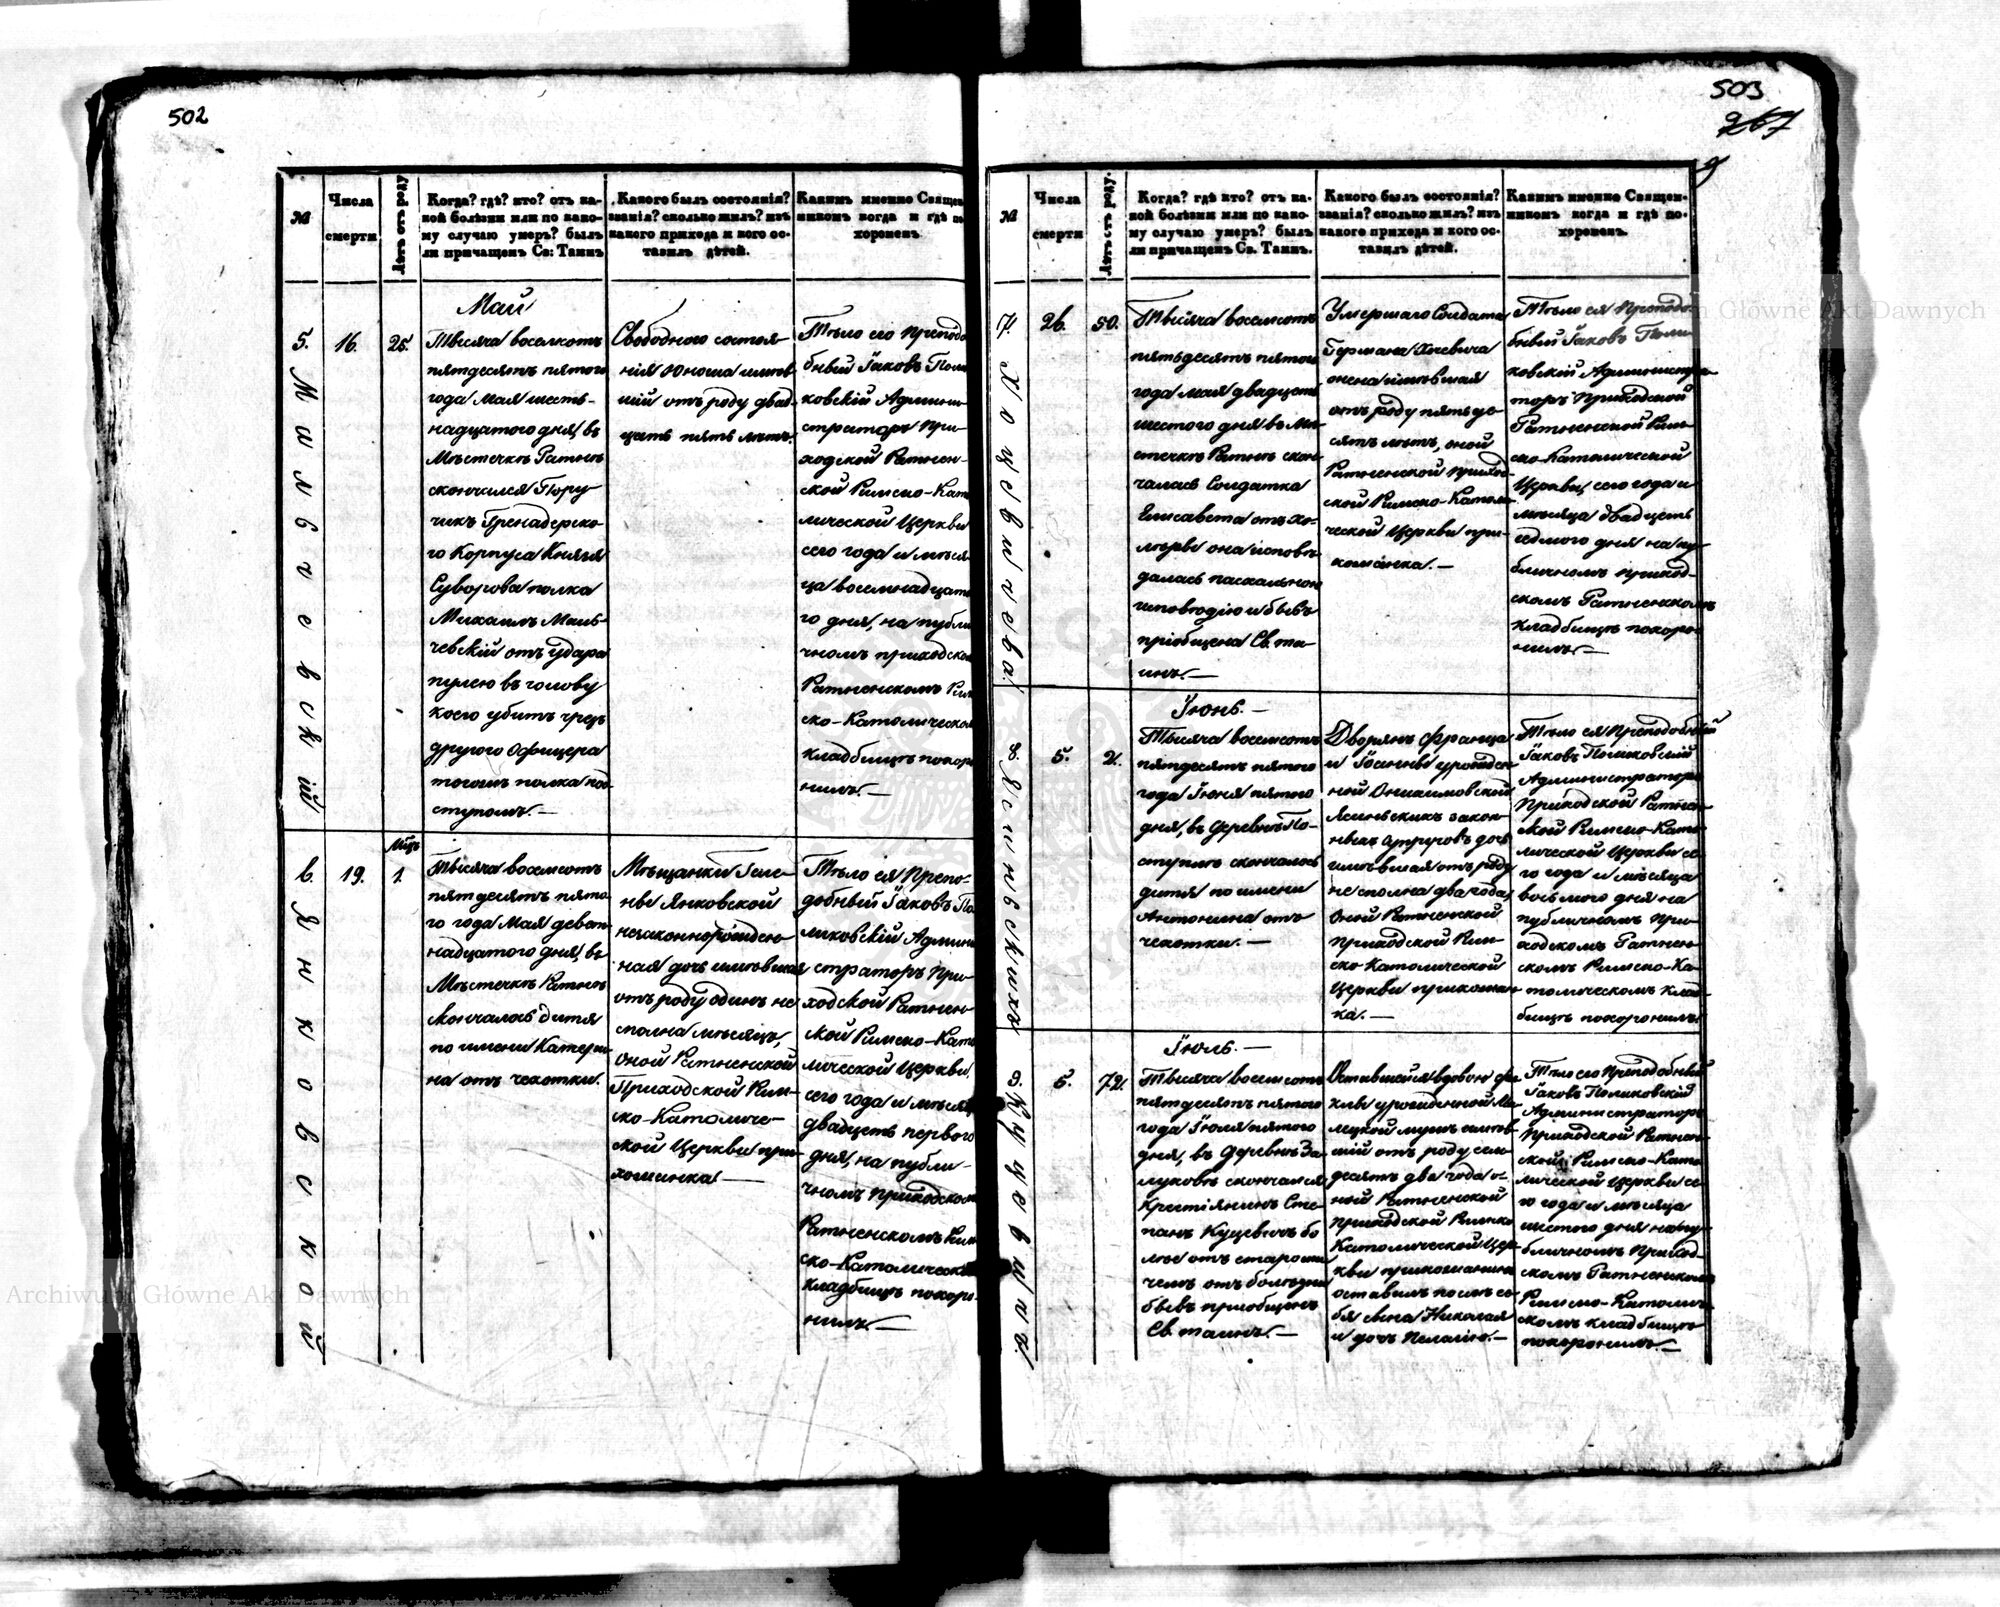 502
№
Числа
смерти
Лѣтъ отъ роду
Когда? гдѣ? кто? отъ ка-
кой болѣзни или по како-
му случаю умеръ? былъ
ли причащенъ Св: Таинъ
Какого былъ состоянія?
званія? сколько жилъ? изъ
какого прихода и кого ос-
тавилъ дѣтей.
Какимъ именно Священ
никомъ когда и гдѣ по
хороненъ
Май
5.
16.
25.
Тысяча восемьсотъ
пятдесятъ пятого
года Мая шест-
надцатого дня, въ
Мѣстечкѣ Ратнѣ
скончился Пору
чикъ Гренадерско-
го Корпуса Князя
Суворова полка
Михаилъ
отъ удара
пулею въ голову
коего убитъ чрезъ
другого Офицера
тогожъ полка
Свободного состоя-
нія Юноша имѣв
шій отъ роду двад-
цать пять лѣтъ.
Тѣло его Преподо
бный Іаковъ
Админи-
страторъ При-
ходской Ратнен-
ской Римско-Като
лической Церкви
сего года и мѣся
ца восемнадцато
го дня, на публи
чномъ приходском
Ратненскомъ Рим
ско-Католическом
кладбищѣ похоро
нилъ.—
Мцъ
6.
19.
1.
Янковской
Тысяча восемсотъ
пятдесятъ пято-
го года Мая девят
надцатого дня, въ
Мѣстечкѣ Ратнѣ
скончалась дитя
по имени Катери
на отъ чехотки.
Мѣщанки Геле-
ны Янковской
незаконнорожден-
ная дочь имѣвшая
отъ роду одинъ не
сполна мѣсяцъ,
оной Ратненской
Приходской Рим-
ско-Католиче-
ской Церкви при-
хожанка —
Тѣло ея Препо-
добный Іаковъ По
ликовскій Админи
страторъ При-
ходской Ратнен-
ской Римско-Като
лической Церкви,
сего года и мѣсяца
двадцать первого
дня, на публи-
чномъ приходском
Ратненскомъ Рим
ско-Католическом
кладбищѣ похоро-
нилъ.—
503
267
№
Числа
смерти
Лѣтъ отъ роду.
Когда? гдѣ кто? отъ ка-
кой болѣзни или по како-
му случаю умеръ? былъ
ли причащенъ Св. Таинъ.
Какого былъ состоянія?
званія? сколько жилъ? изъ
какого прихода и кого ос-
тавилъ дѣтей.
Какимъ именно Священ-
никомъ когда и гдѣ по-
хороненъ.
7.
26.
50.
Тысяча восемсотъ
пятьдесятъ пятого
года мая двадцать
шестого дня въ мѣ-
стечкѣ Ратнѣ скон-
чалась Солдатка
Елисавета отъ хо-
леры она исповѣ
далась пасхальною
исповѣдію и бывъ
пріобщена Св. та-
инъ.—
Умершаго Солдата
Германа
жена имѣвшая
отъ роду пятьде-
сятъ лѣтъ, оной
Ратненской Приход-
ской Римско-Католи-
ческой Церкви при-
хожанка.—
Тѣло ея Преподо-
бный Іаковъ Поли
ковскій Администра-
торъ Приходской
Ратненской Рим-
ско-Католической
Церкви, сего года и
мѣсяца двадцать
седмого дня на пу-
бличномъ приход-
скомъ Ратненскомъ
кладбищѣ похоро-
нилъ.—
Іюнь.—
8.
5.
2.
Тысяча восемсотъ
пятдесятъ пятого
года Іюня пятого
дня, въ Деревнѣ По-
ступлѣ скончалась
дитя по имени
Антонина отъ
чехотки.—
Дворянъ Франца
и Іоанны урожден
ной
закон-
ныхъ супруговъ дочь
имѣвшая отъ роду
не сполна два года,
оной Ратненской
приходской Рим-
ско Католической
Церкви прихожан
ка.—
Тѣло ея Преподобный
Іаковъ Поликовскій
Администраторъ
Приходской Ратнен-
ской Римско-Като-
лической Церкви се-
го года и мѣсяца
восьмого дня на
публичномъ При-
ходскомъ Ратнен
скомъ Римско-Ка-
толическомъ клад-
бищѣ похоронилъ.
Іюль.—
9.
5.
72.
Куцевичъ
Тысяча восемсотъ
пятдесятъ пятого
года Іюля пятого
дня, въ Деревнѣ За-
луховѣ скончался
Крестіянинъ Сте-
панъ Куцевичъ бо
лѣе отъ старости
чемъ отъ болѣзни
бывъ пріобщенъ
Св. таинъ.—
урожденной
мужъ имѣв
шій отъ роду сем-
десятъ два года о-
ной Ратненской
приходской Римско
Католической Цер-
кви прихожанинъ
оставилъ послѣ се-
бя сына Николая
и дочь Пелагію.—
Тѣло его Преподобный
Іаковъ Поликовскій
Администраторъ
Приходской Ратнен-
ской Римско-Като
лической Церкви се-
го года и мѣсяца
шестого дня на пу-
бличномъ Приход-
скомъ Ратненскомъ
Римско-Католич-
скомъ кладбищѣ
похоронилъ.—
Archiwum Główne Akt Dawnych
Główne Akt Dawnych